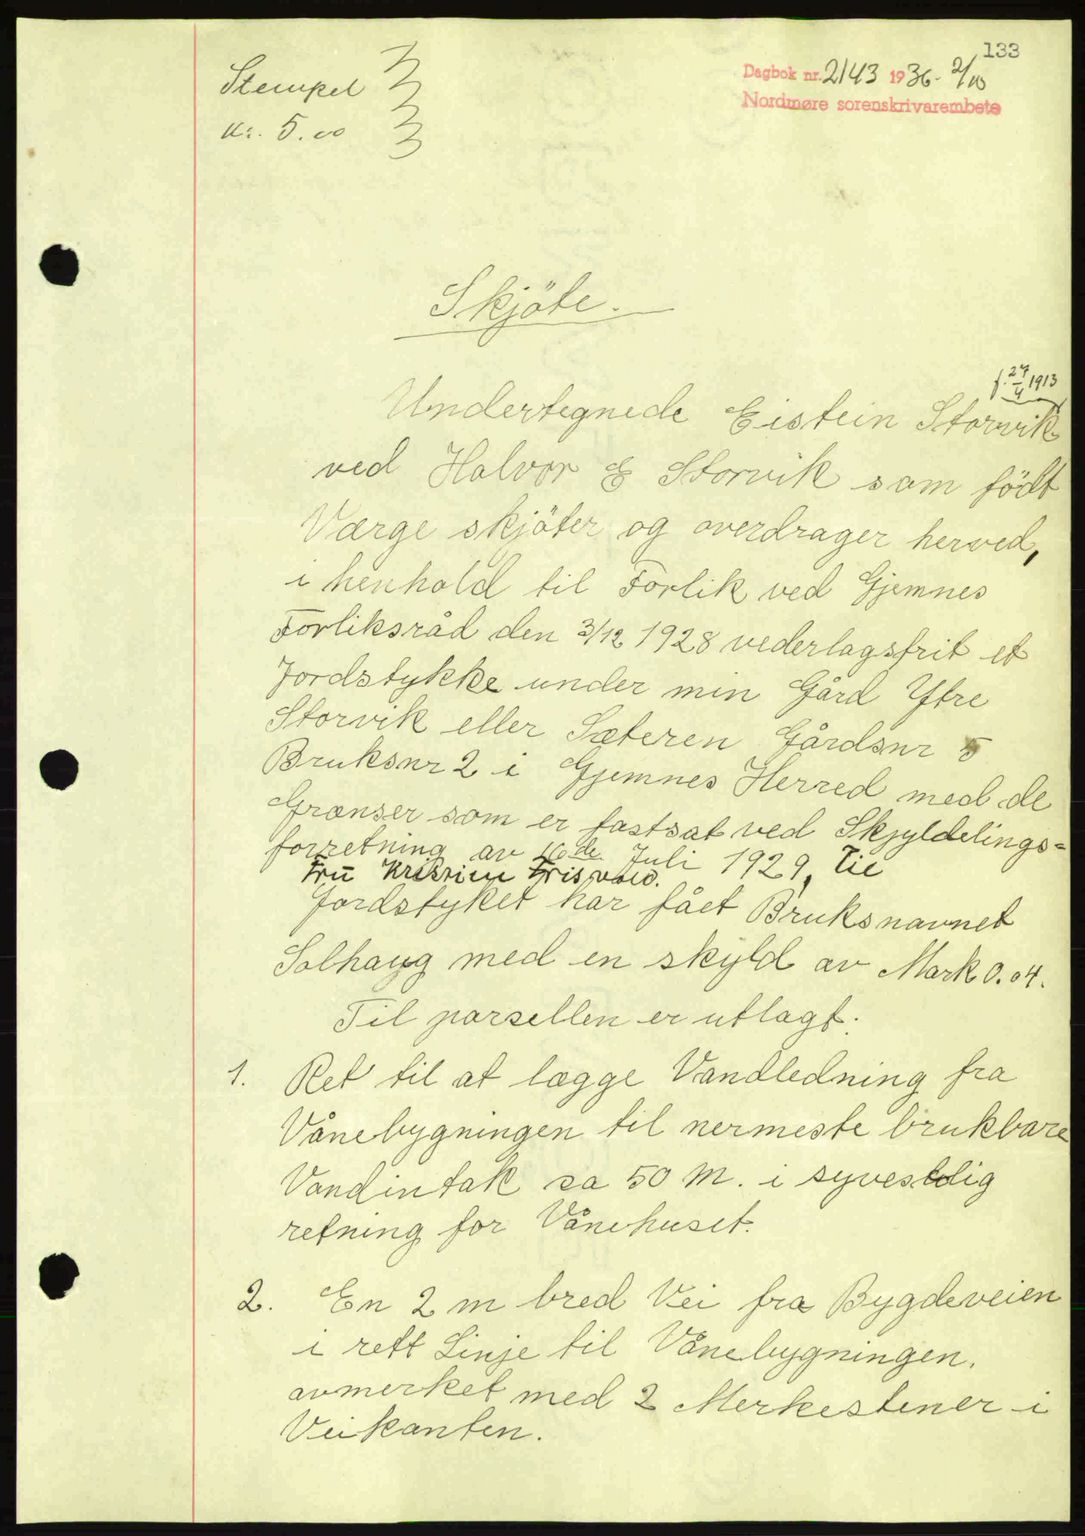 133
Stempel
kr. 5.00
Dagbok nr. 2143 1936 - 2/10
Nordmøre sorenskrivarembete
Skjöte.
f. 24/4 1913
Undertegnede Eistein Storvik
ved Halvor E Storvik som födt
Værge skjöter og overdrager herved,
i henhold til Forlik ved Gjemnes
Forliksråd den 3/12 1928 vederlagsfrit et
Jordstykke under min Gård Ytre
Storvik eller Sæteren Gårdsnr 5
Bruksnr 2 i Gjemnes Herred med de
Grænser som er fastsat ved Skjyldelings-
forretning av 16de Juli 1929, til
Fru Kristine Frisvold.
Jordstyket har fået Bruksnavnet
Solhaug med en skyld av Mark 0.04.
Til parsellen er utlagt:
1. Ret til at lægge Vandledning fra
Vånebygningen til nermeste brukbare
Vandintak ca 50 M. i syvestlig
retning for Vånehuset.
2. En 2 m bred Vei fra Bygdeveien
i rett Linje til Vånebygningen.
avmerket med 2 Merkestener i
Veikanten.